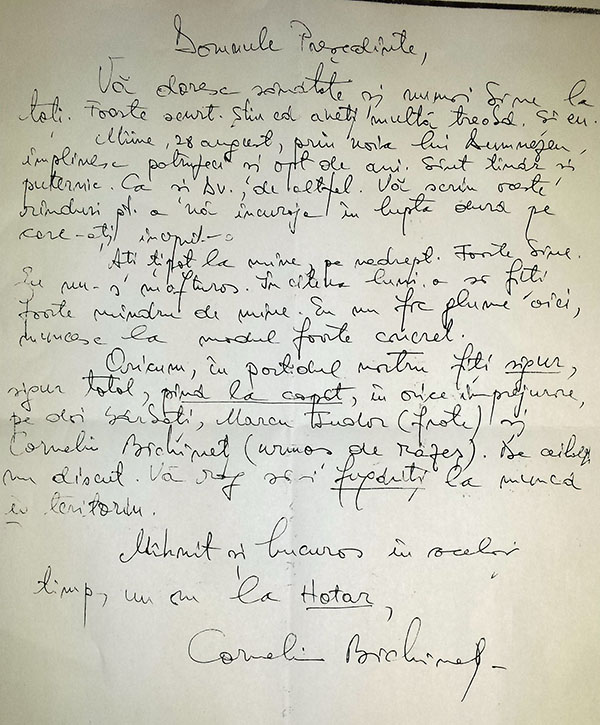 Domnule Președinte,
Vă doresc sănătate și numai bine la
toți. Foarte scurt. Știu că aveți multă treabă. Și eu.
Mîine, 28 august, prin voia lui Dumnezeu,
împlinesc patruzeci și opt de ani. Sînt tînăr și
puternic. Ca și Dv., de altfel. Vă scriu aceste
rînduri pt. a vă încuraja în lupta dură pe
care-ați început-o
Ați țipat la mine, pe nedrept. Foarte bine.
Eu nu-s mofturos. În cîteva luni o să fiți
foarte mîndru de mine. Eu nu fac glume aici,
muncesc la modul foarte concret.
Oricum, în partidul nostru fiți sigur,
sigur total, pînă la capăt, în orice împrejurare,
pe doi bărbați, Marcu Tudor (frate) și
Corneliu Bichineț (urmaș de răzeș). De ceilalți
nu discut. Vă rog să-i fugăriți la muncă
în teritoriu.
Mîhnit și bucuros în același
timp, un om la Hotar,
Corneliu Bichineț